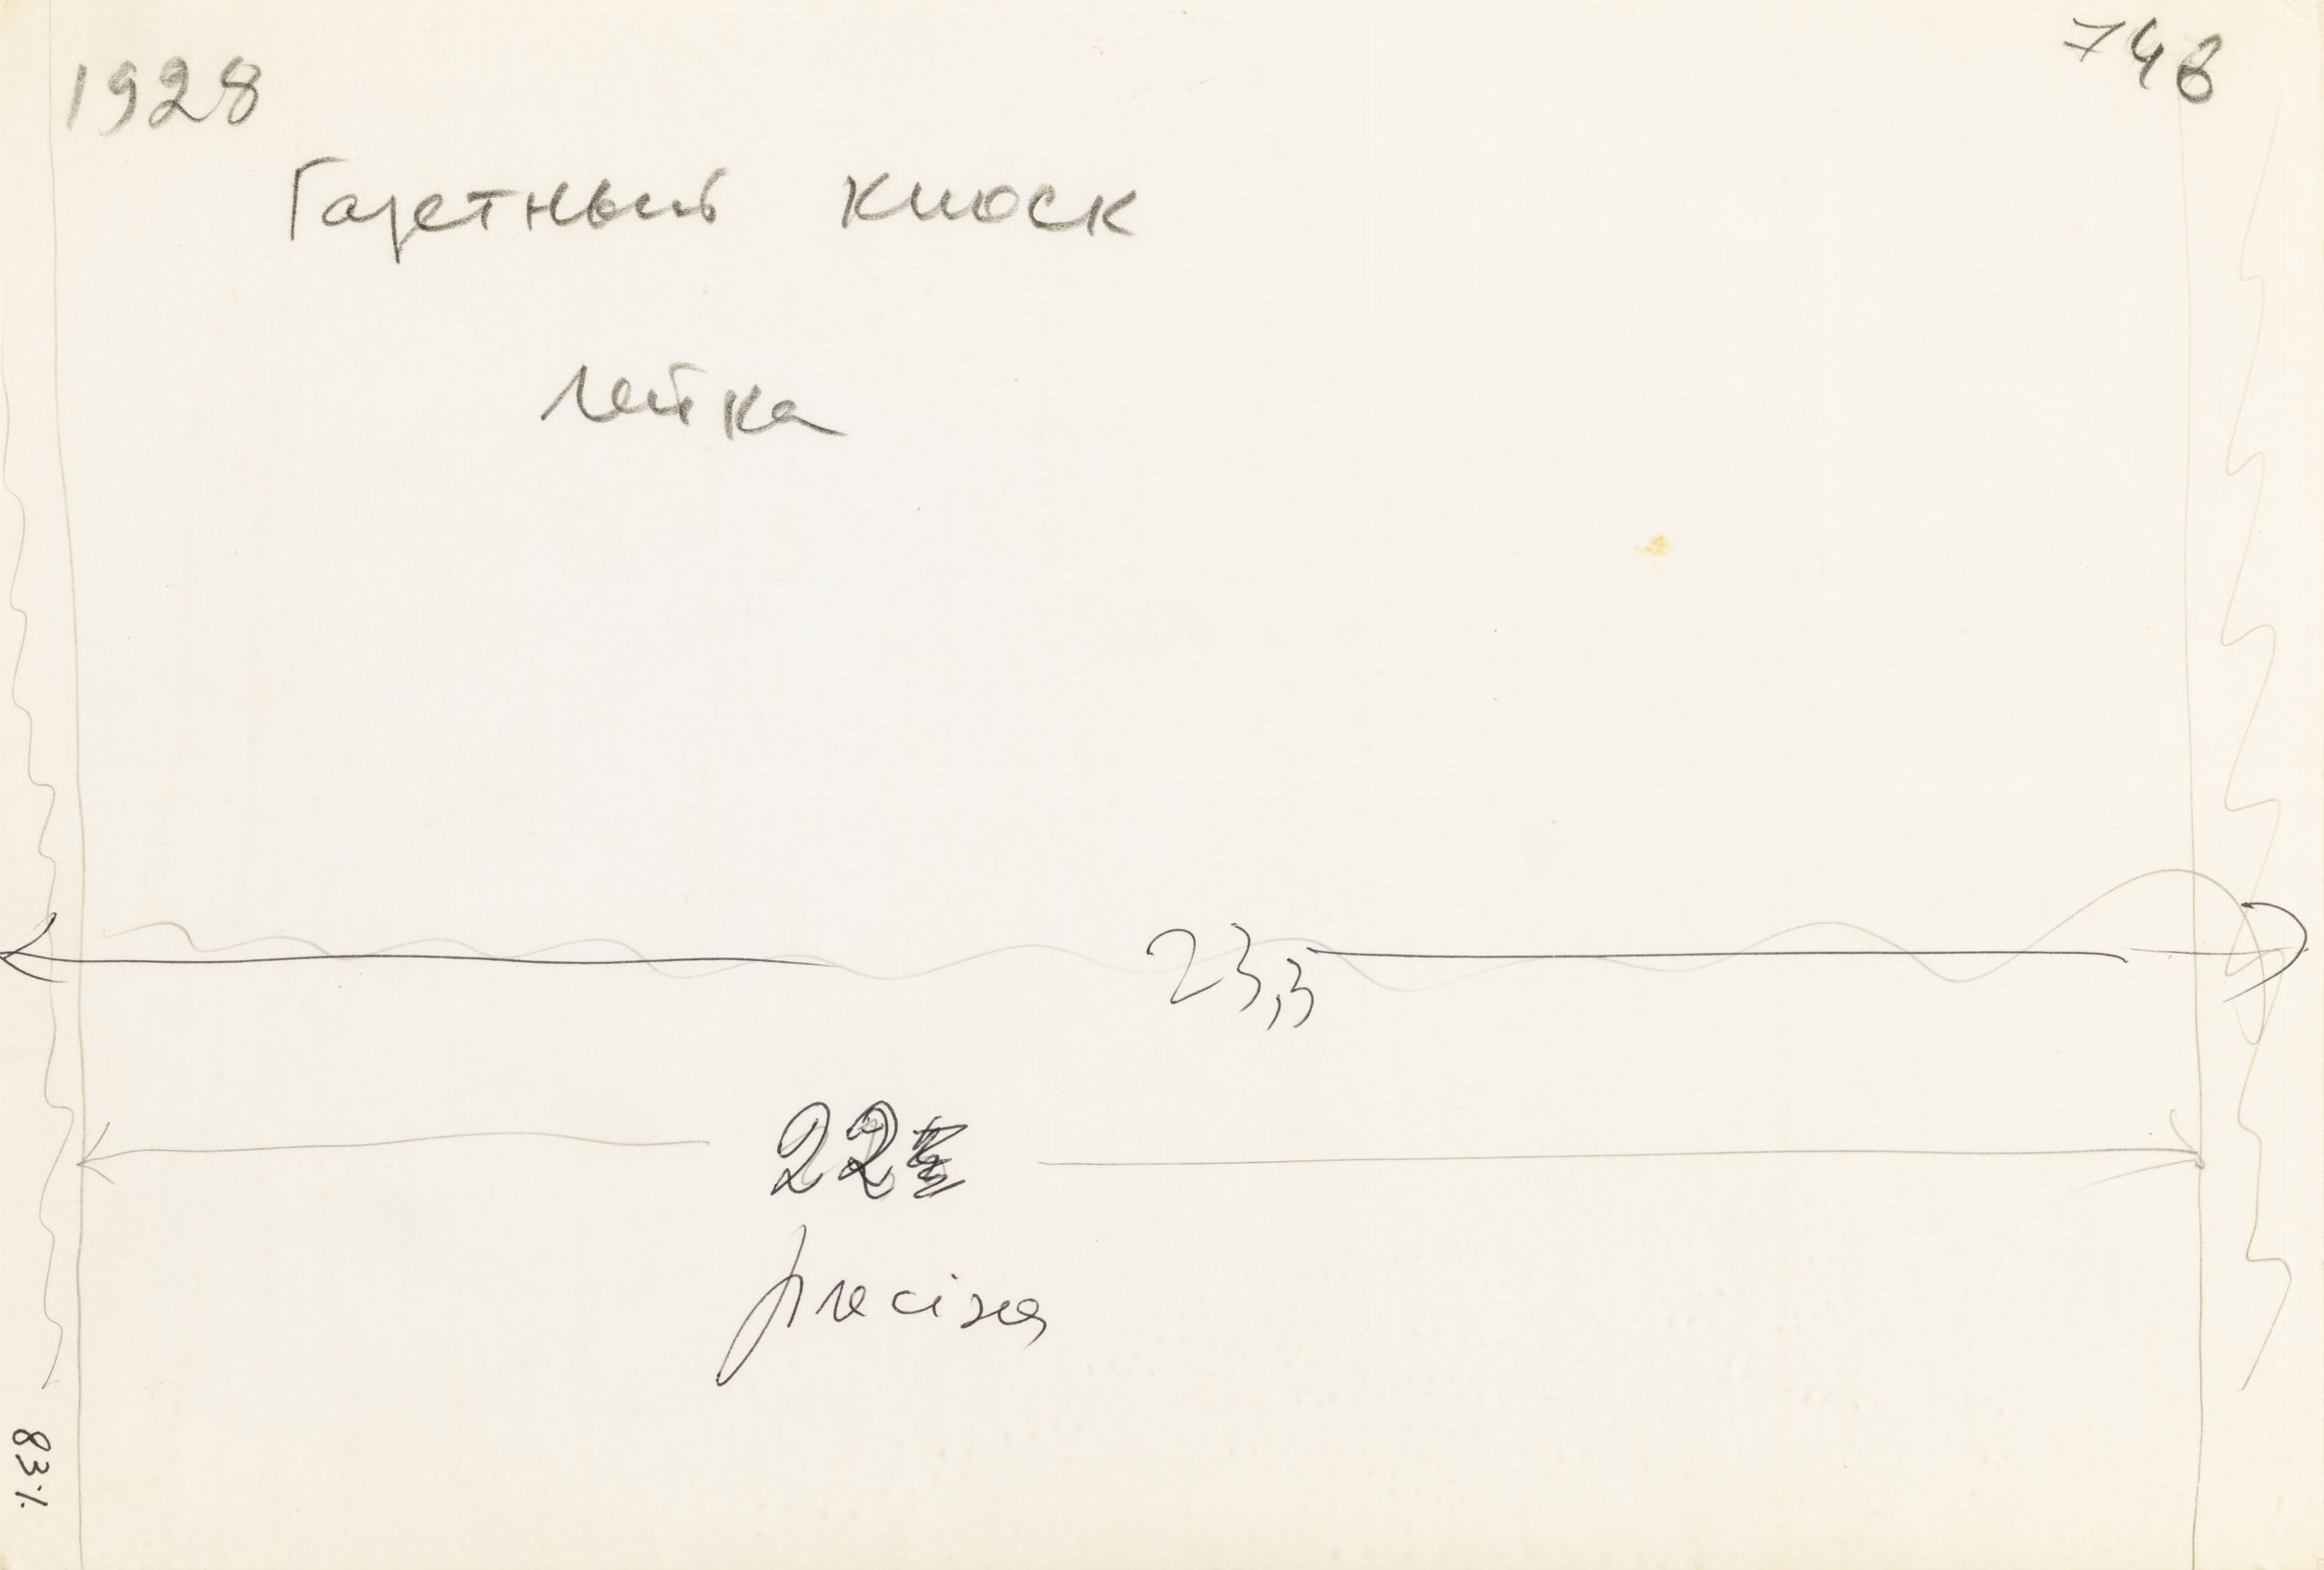 1928
746
Газетный киоск
лейка
23,3
22
precisa
83%